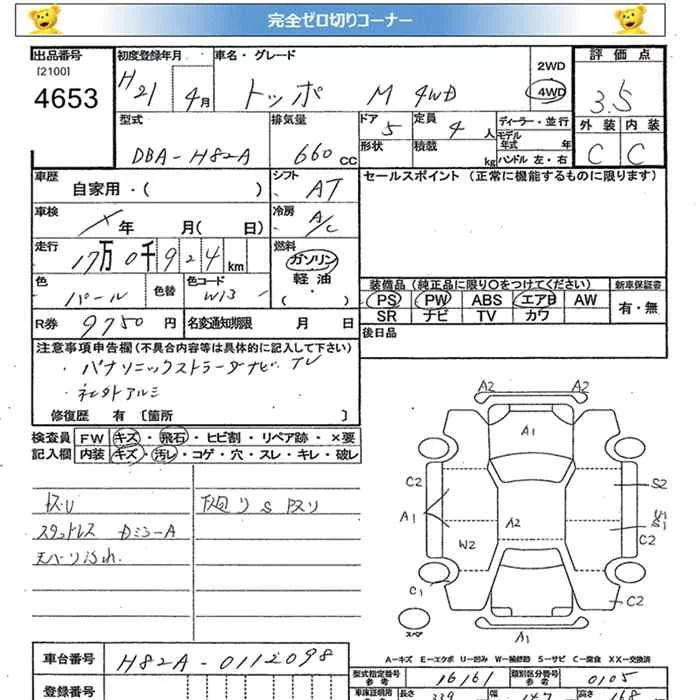 完全ゼロ切りコーナー
出品番号 初度登録年月 車名・グレード 2WD 評価点
[2100]
4653 H21 4月 トッポ M 4WD 4WD 3.5
型式 排気量 ドア 5 定員 4人 ディーラー・並行 外装 内装
モデル年式 年
DBA-H82A 660cc 形状 積載 kg ハンドル 左・右 C C
車歴 自家用・( ) シフト AT セールスポイント (正常に機能するものに限ります)
車検 年 月( 日) 冷房 A/C
走行 17万0千924km 燃料 ガソリン
軽油
・( )
色 パール 色替 色コード W13 装備品 (純正品に限り○をつけてください) 新車保証書
PS PW ABS エアB AW 有・無
R券 9750円 名変通知期限 月 日 SR ナビ TV カワ
後日品
注意事項申告欄(不具合内容等は具体的に記入して下さい)
・パナソニックストラーダナビ TV
・社外アルミ
修復歴 有 [箇所 ]
検査員 FW キズ・飛石・ヒビ割・リペア跡・×要
記入欄 内装 キズ・汚レ・コゲ・穴・スレ・キレ・破レ
スタットレス
A2 A2
A1
C2 S2
A1 A2 S1
W2 C2
C1 C2
スペア A1
車台番号 H82A-0112098
A-キズ E-エクボ U-凹み W-補修跡 S-サビ C-腐食 XX-交換済
型式指定番号 参考 16161 類別区分番号 参考 0105
登録番号 車庫証明用 参考 長さ 339 幅 147 高さ 168